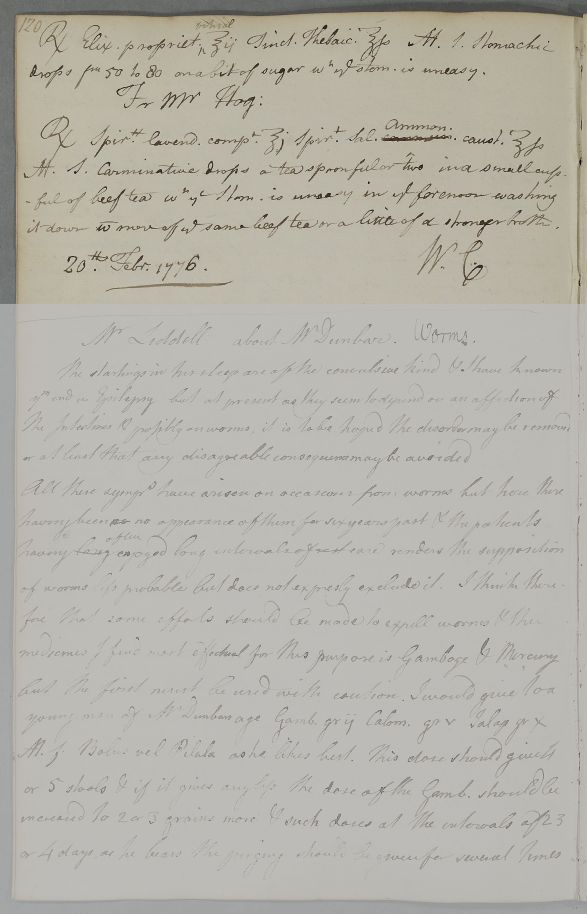 120
℞ Elix. propriet. vitriol ʒij Tinct. Thebaic. ʒſs M. S. Stomachic
drops from 50 to 80 on a bit of sugar wn ye stom. is uneasy.
For Mr Hog:
℞ Spirit lavend. compt. ℥j Spirt. Sal. ammon. caust. ʒſs
M. S. Carminative drops a tea spoonful or two in a small cup-
-ful of beef tea wn ye Stom. is uneasy in ye forenoon washing
it down wt more of ye same beef tea or a little of a stronger broth.
20th. Febr. 1776. W. C.
Mr Liddell about Mr Dunbar. Worms.
The startings in his sleep are of the convulsive kind & I have known
ym end in Epilepsy but at present as they seem to depend on an affection of
the Intestines & possibly on worms, it is to be hoped the disorder may be removed
or at least that any disagreable consequences may be avoided
All these sympts have arisen on occasion from worms but here there
having been no appearance of them for six years past & the patients
having often enjoyed long intervals of ease renders the supposition
of worms less probable but does not expressly exclude it. I think there-
fore that some efforts should be made to expell worms & the
medicines I find most effectual for this purpose is Gamboge & Mercury
but the first must be used with caution. I would give to a
young man of Mr Dunbars age Gamb. gr iij Calom. gr v Jalap gr x
M. f. Bolus vel Pilula as he likes best. This dose should give 4
or 5 stools & if it gives any less the dose of the Gamb. should be
increased to 2 or 3 grains more & such doses at the intervals of 2 3
or 4 days as he bears the purging should be given for several times